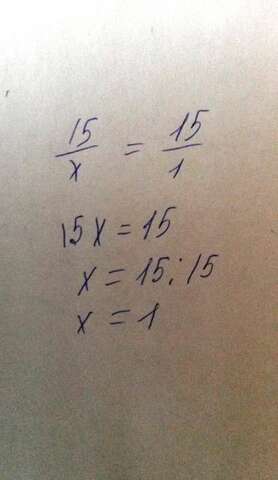 15/x = 15/1
15x = 15
x = 15:15
x = 1